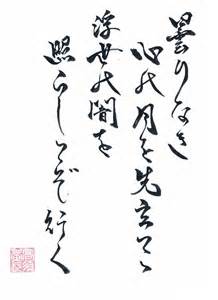 曇りなき
心の月を先立てゝ
浮世の闇を
照らしてぞ行く